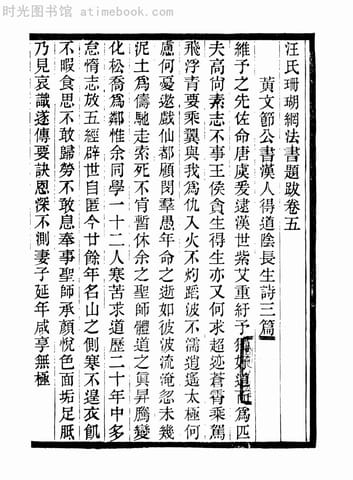 时光图书馆 atimebook.com
汪氏珊瑚網法書題跋卷五
黃文節公書漢人得道陰長生詩三篇
維予之先佐命唐虞爰逮漢世紫艾重紆予獨好道而為匹
夫高尚素志不事王侯貪生得生亦又何求超迹蒼霄乘駕
飛浮青要乘翼與我為仇入火不灼蹈波不濡逍遙太極何
慮何憂遨戲仙都顧閔羣愚年命之逝如彼波流淹忽未幾
泥土為儔馳走索死不肯暫休余之聖師體道之眞昇騰變
化松喬為鄰惟余同學一十二人寒苦求道歷二十年中多
怠惰志放五經辟世自匿今廿餘年名山之側寒不遑衣飢
不暇食思不敢歸勞不敢息奉事聖師承顔悅色面垢足胝
乃見哀識遂傳要訣恩深不測妻子延年咸享無極